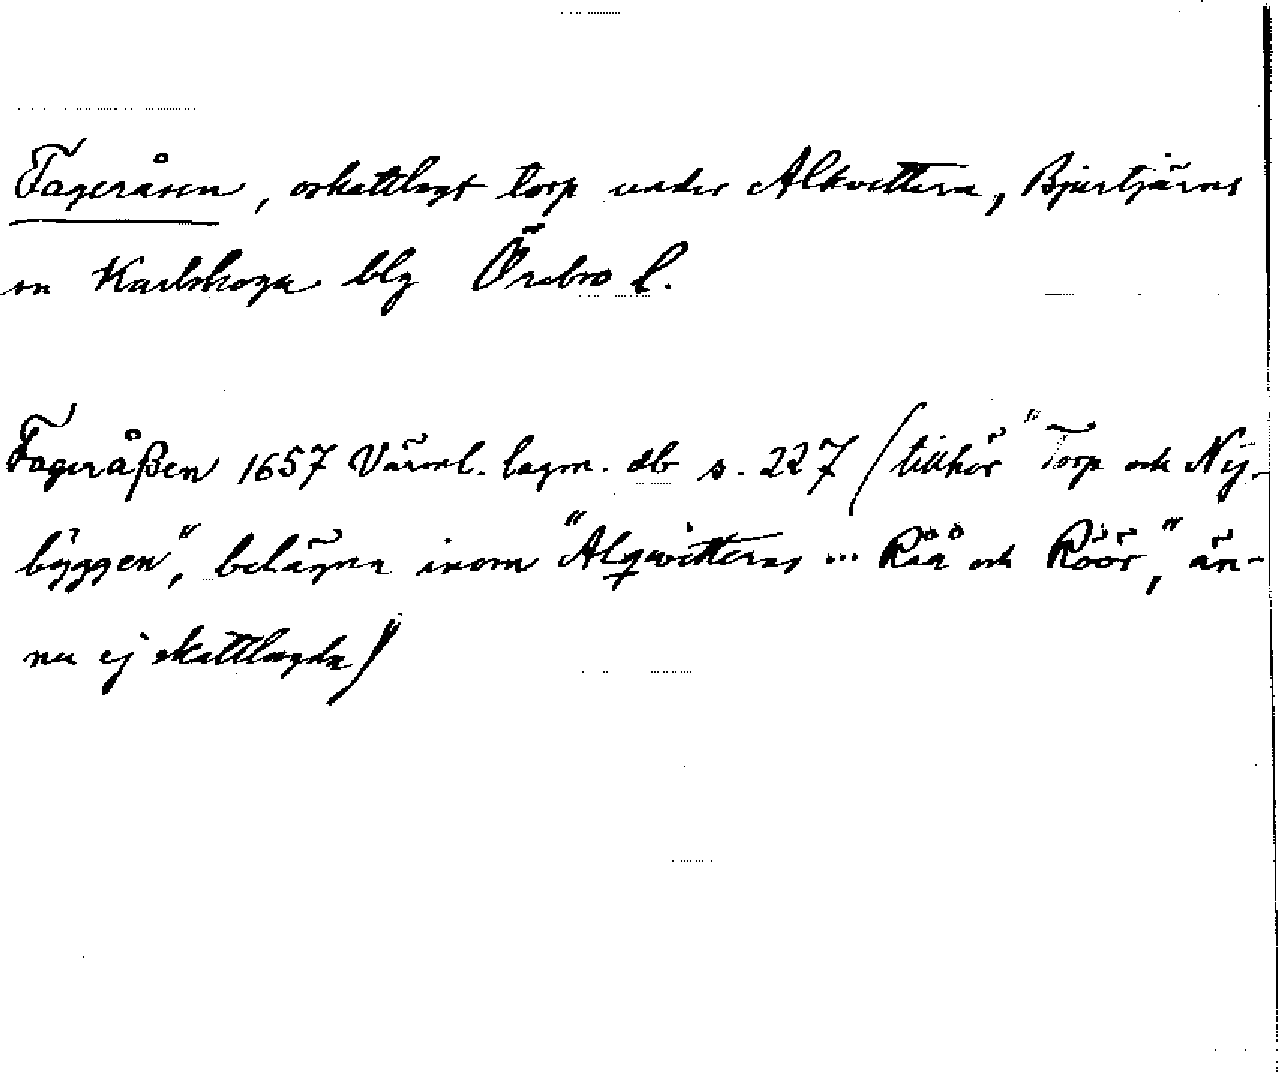 Fageråsen, oskattlagt torp under Alkvettern, Bjurtjärns
sn Karlskoga blg Örebro l.
Fageråßen 1657 Värml. lagm. db s. 227 (tillhör "Torp och Nÿ-
bÿggen", belägna inom "Alqwitterns ... Råå och Röör", än-
nu ej skattlagda)